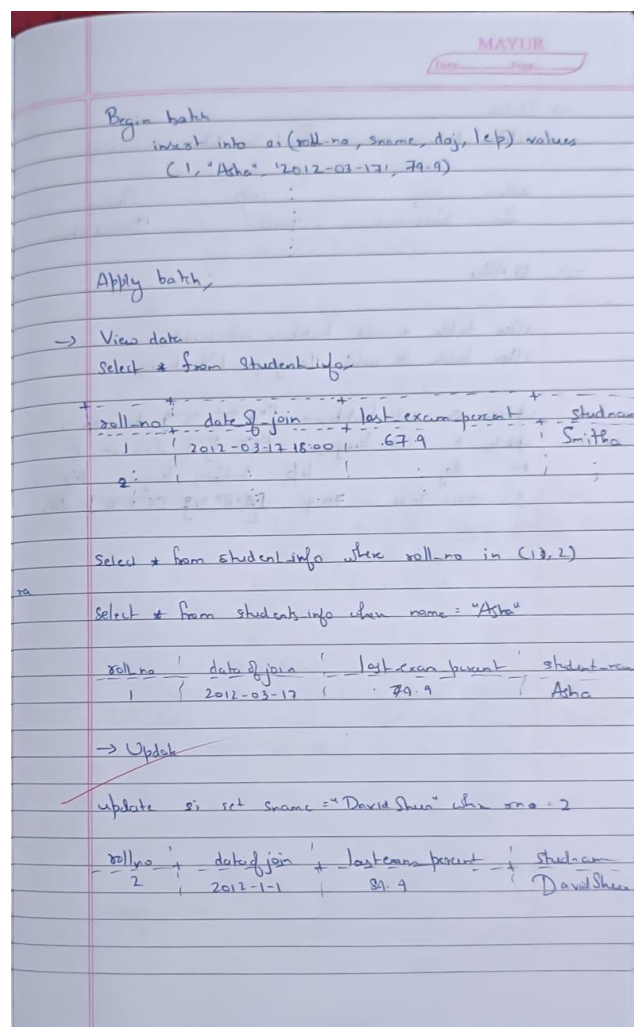 MAYUR
Date Page
Begin batch
insert into si (roll-no, sname, doj, lep) values
(1, "Asha", '2012-03-17', 79.9)
Apply batch;
→ View data
Select * from Student_info;
roll-no date of-join last exam percent studnam
1 2012-03-17 18:00 67.9 Smitha
2
Select * from student_info where roll-no in (1, 2)
ra
Select * from students_info when name = "Asha"
roll no date of join last exan percent student-nam
1 2012-03-17 79.9 Asha
→ Update
update si set sname = "David Sheen" whr rno = 2
roll no date of join last exam percent studnam
2 2012-1-1 89.9 David Sheen